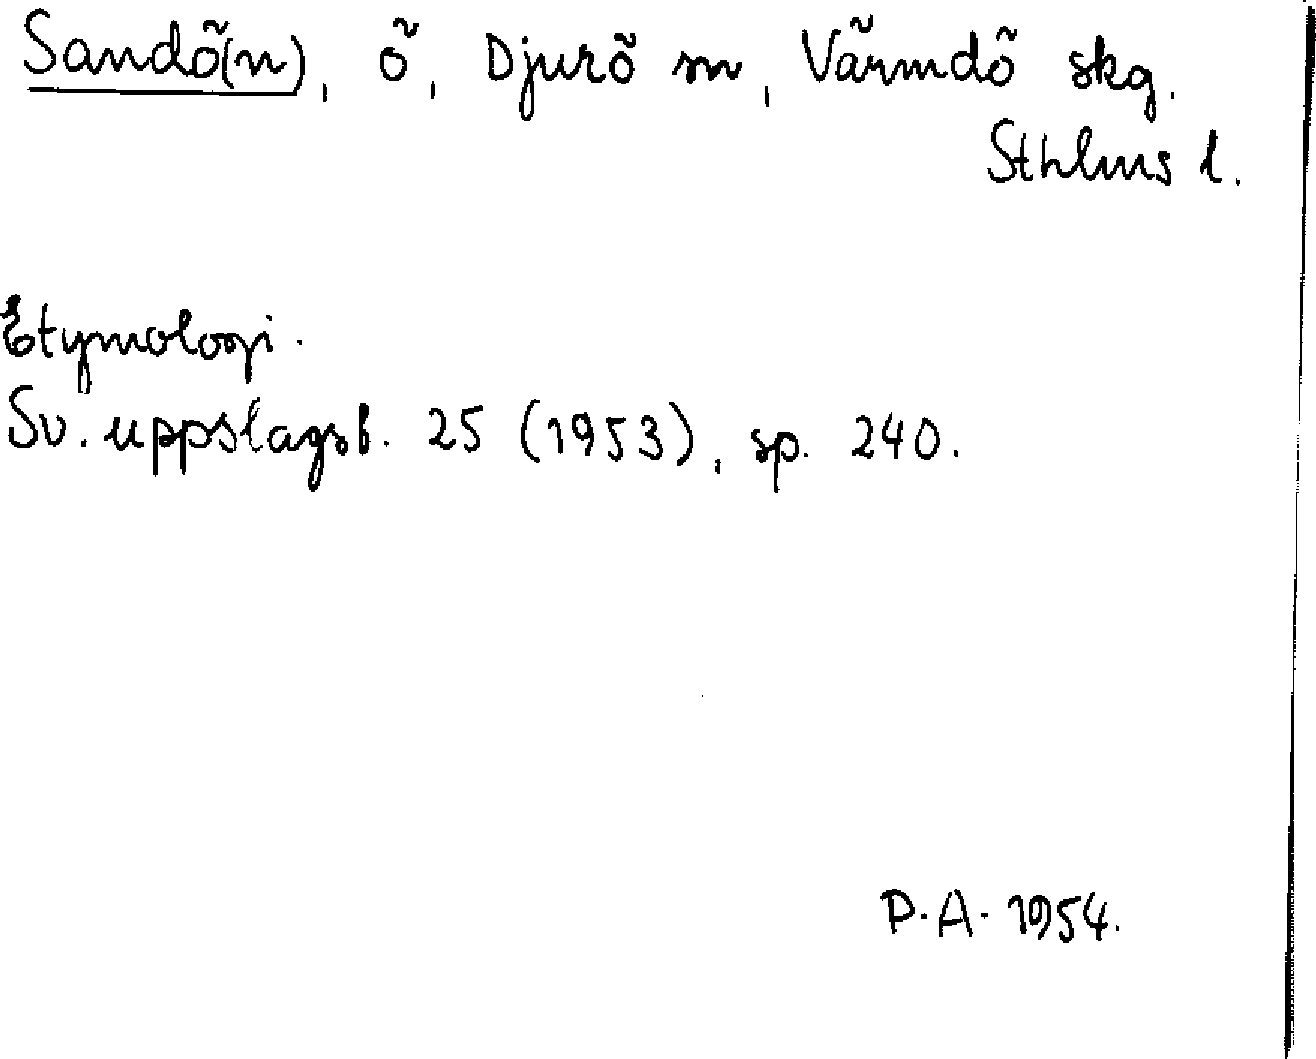 Sandö(n), ö, Djurö sn, Värmdö skg.
Sthlms l.
Etymologi.
Sv. uppslagsb. 25 (1953), sp. 240.
P.A. 1954.